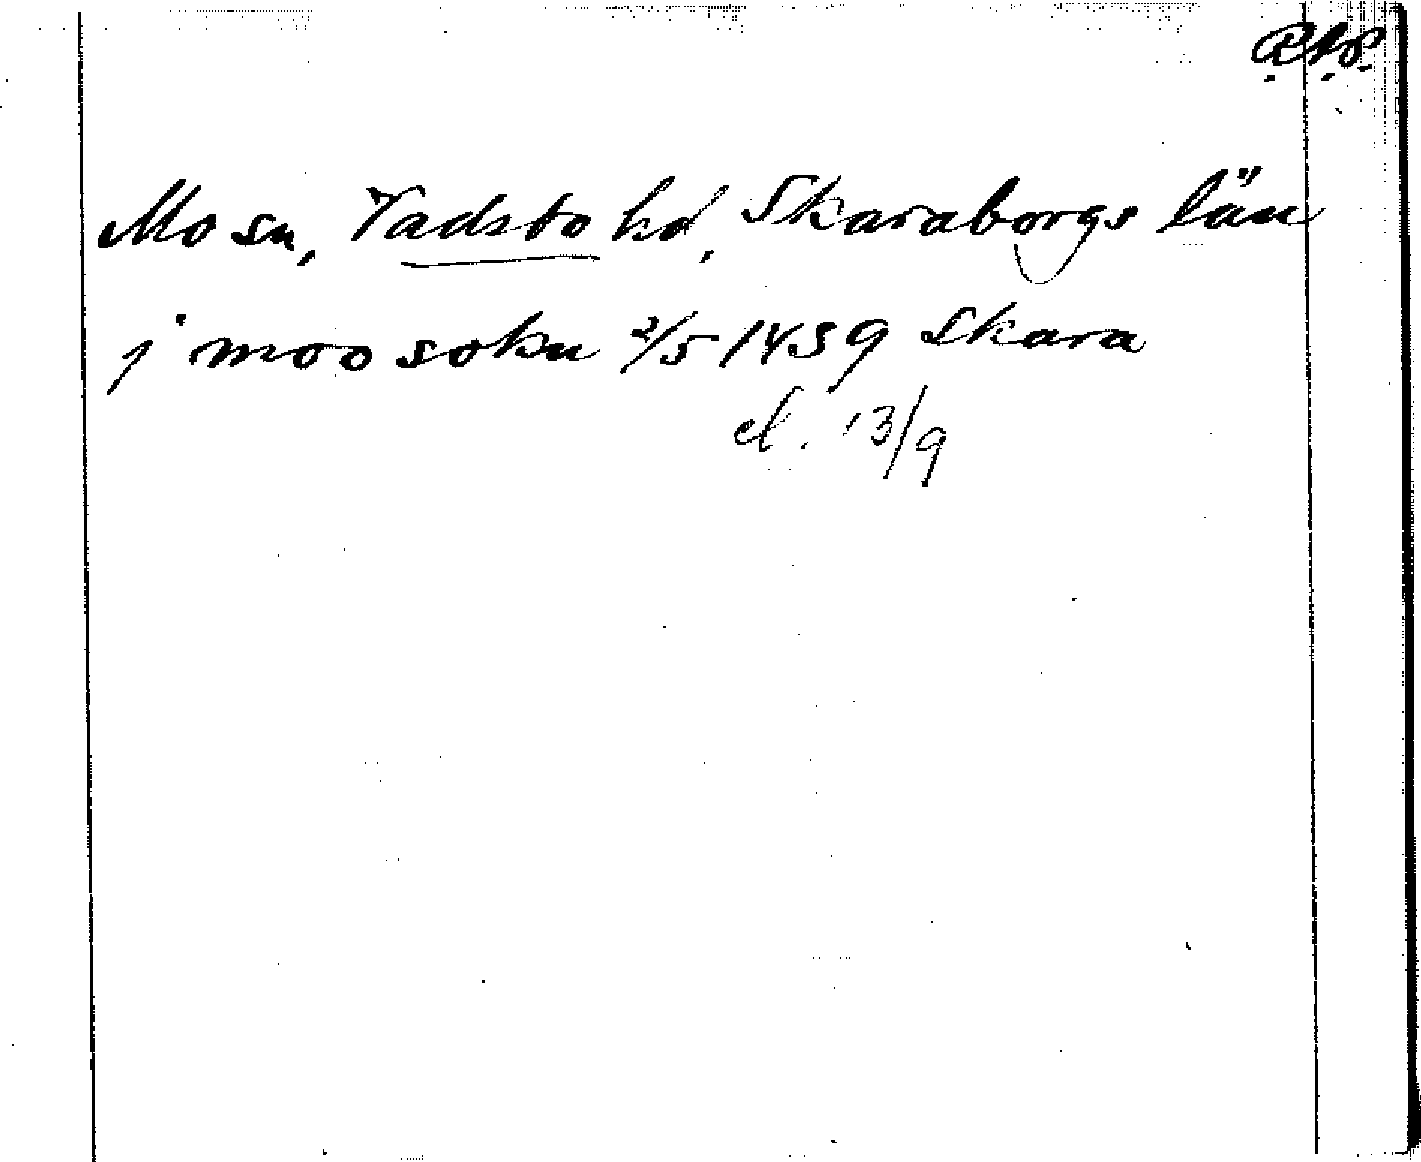 RAP.
Mo sn, Vadsbo hd, Skaraborgs län
j moo sokn 2/5 1439 Skara
el. 13/9